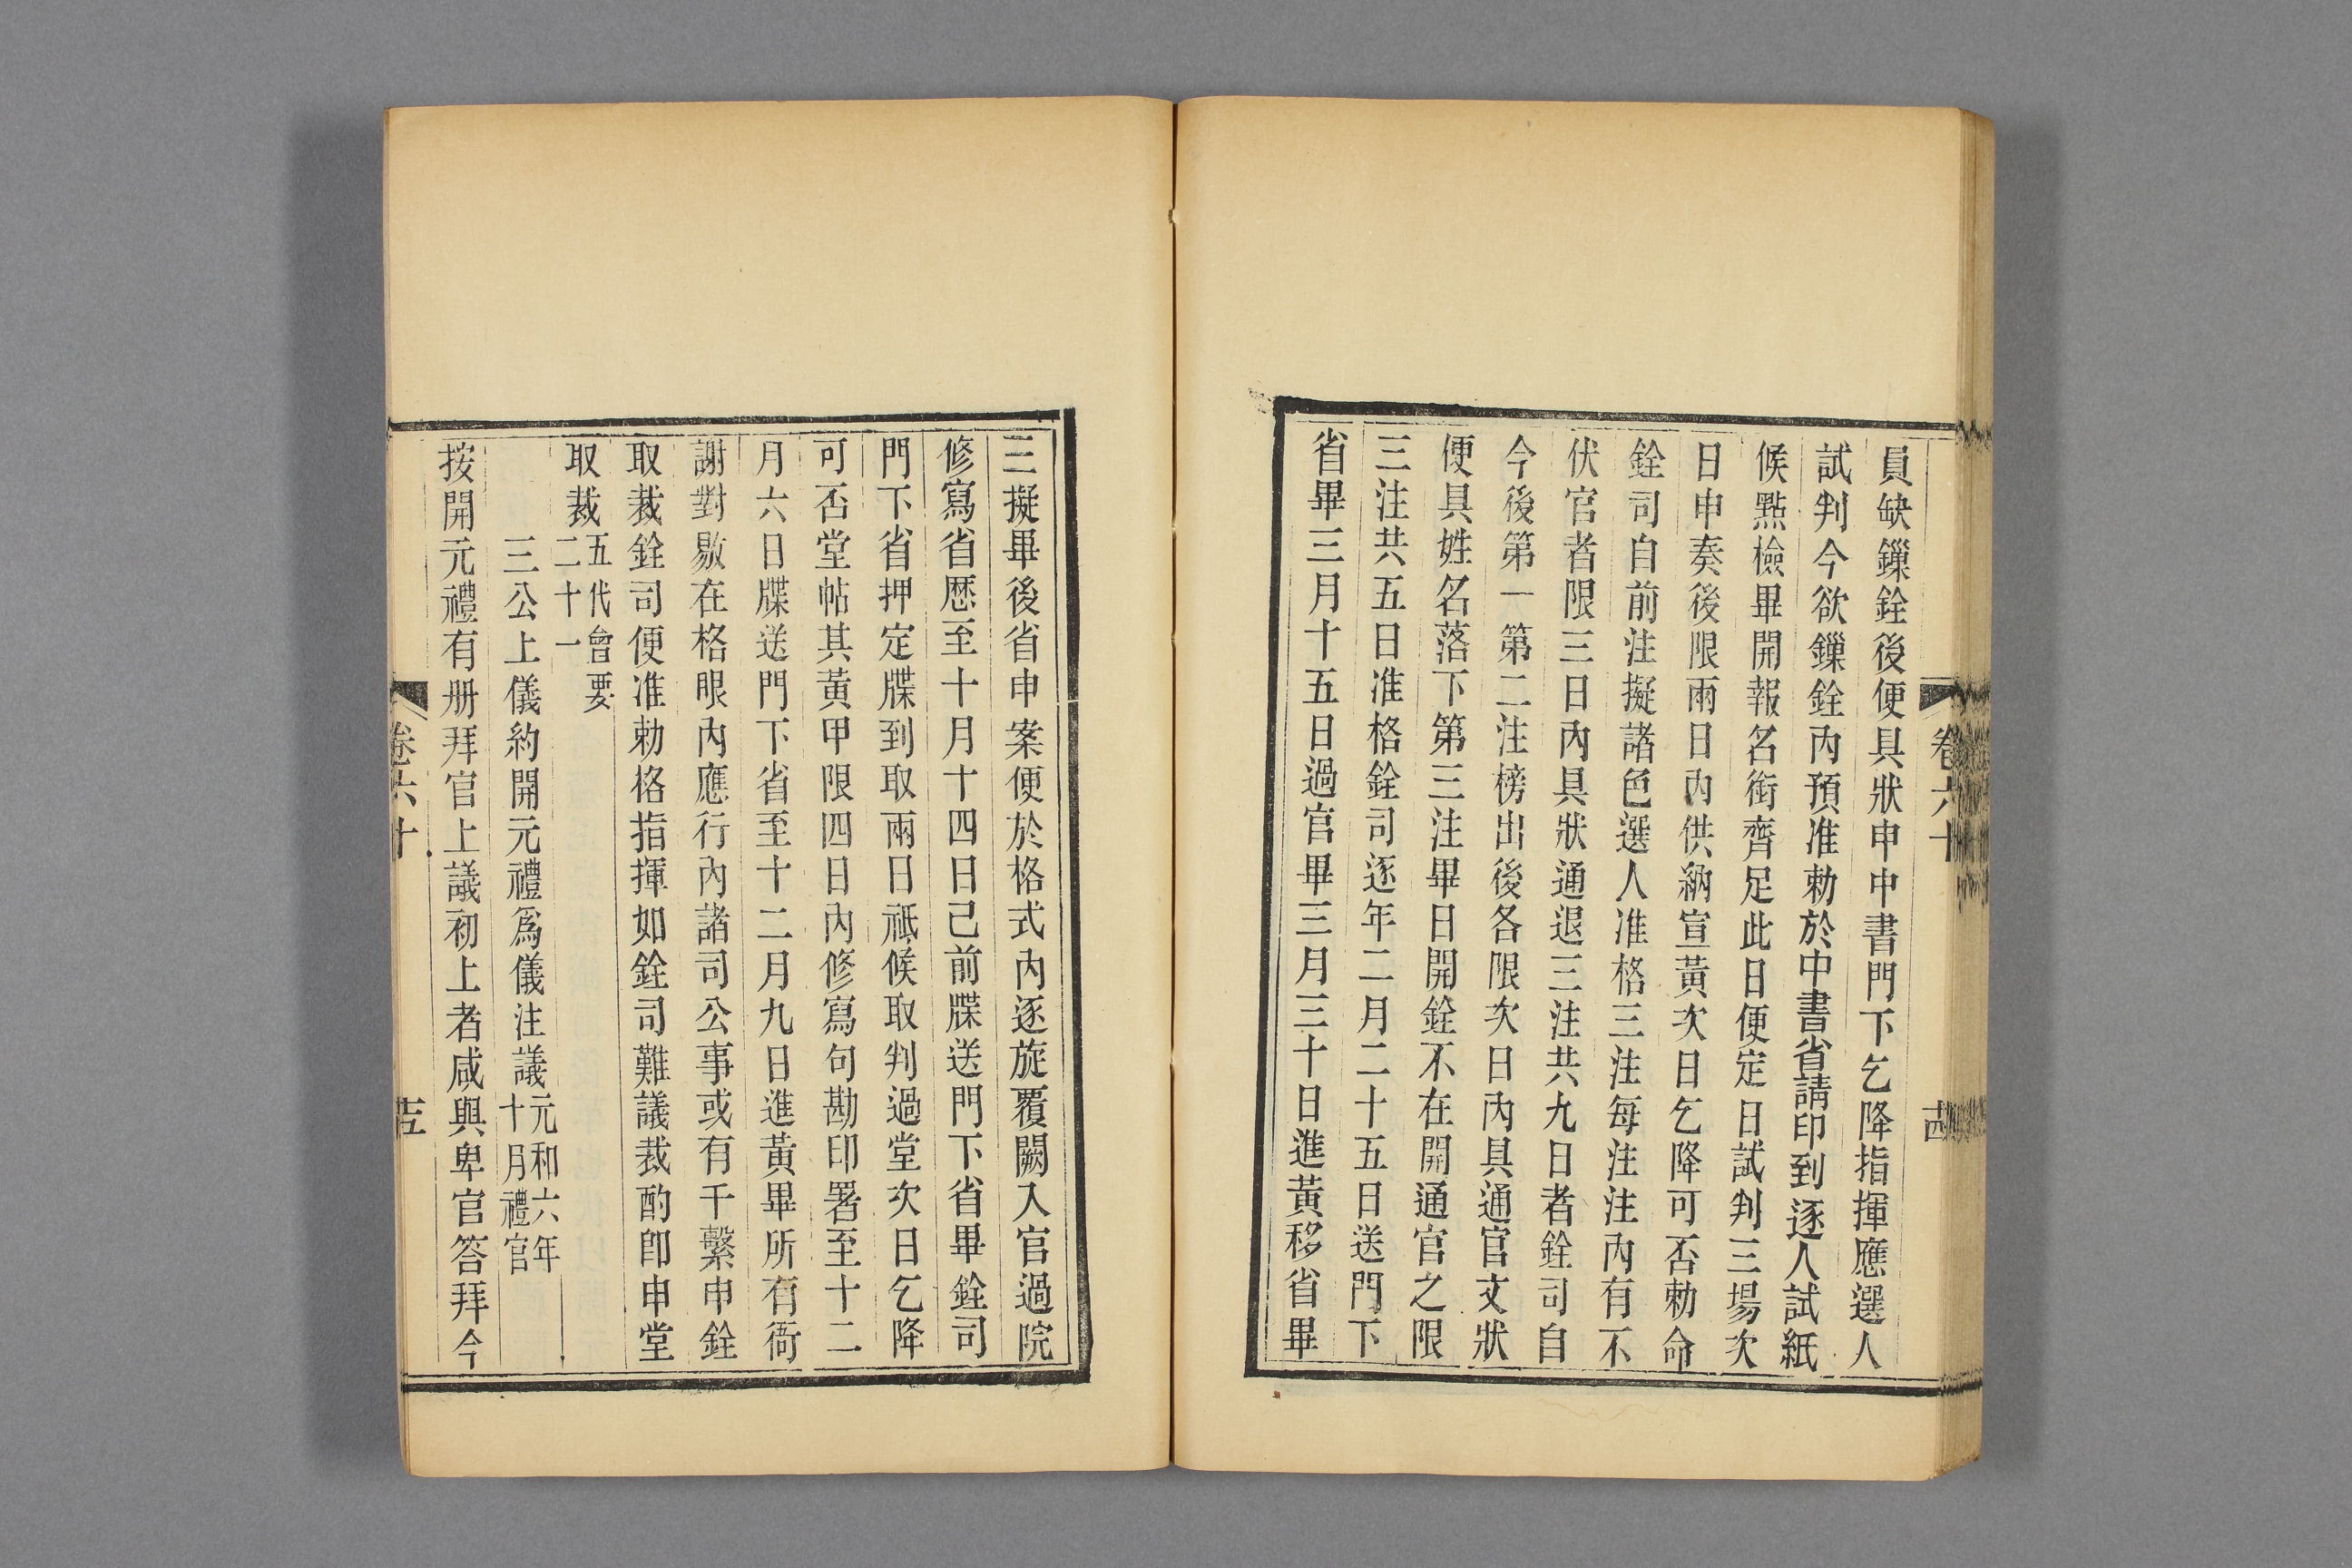 員缺鏁銓後便具狀申中書門下乞降指揮應選人
試判今欲鏁銓內預准勅於中書省請印到逐人試紙
候㸃檢畢開報名銜齊足此日便定日試判三場次
日申奏後限兩日內供納宣黃次日乞降可否勅命
銓司自前注擬諸色選人准格三注每注注內有不
伏官者限三日內具狀通退三注共九日者銓司自
今後第一第二注榜出後各限次日內具通官文狀
便具姓名落下第三注畢日開銓不在開通官之限
三注共五日准格銓司逐年二月二十五日送門下
省畢三月十五日過官畢三月三十日進黃移省畢
卷六十
十四
三擬畢後省申案便於格式內逐旋覆闕入官過院
修寫省歷至十月十四日已前牒送門下省畢銓司
門下省押定牒到取兩日祗候取判過堂次日乞降
可否堂帖其黃甲限四日內修寫句勘印署至十二
月六日牒送門下省至十二月九日進黃畢所有衙
謝對敭在格限內應行內諸司公事或有干繫申銓
取裁銓司便准勅格指揮如銓司難議裁酌卽申堂
取裁五代會要
二十一
三公上儀約開元禮爲儀注議元和六年
十月禮官
按開元禮有册拜官上議初上者咸與卑官答拜今
卷六十
十五